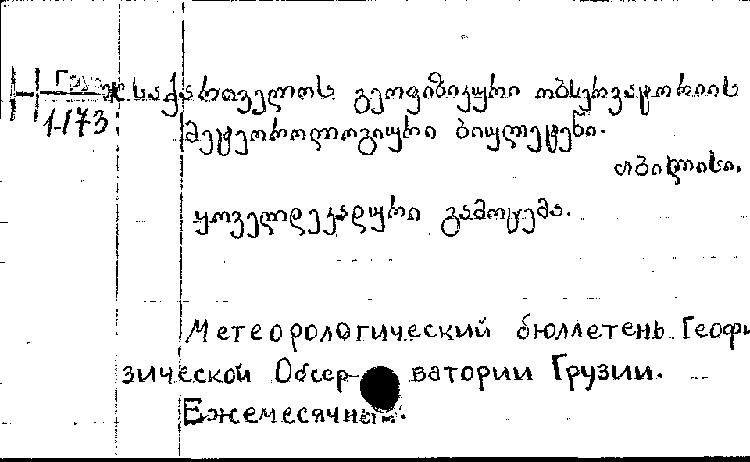 Груз
Н
1-173
საქართველოს გეოფიზიკური ობსერვატორიის
მეტეოროლოგიური ბიულეტენი.
თბილისი.
ყოველდეკადური გამოცემა.
Метеорологический бюллетень Геофи
зической Обсер- ватории Грузии.
Ежемесячный.